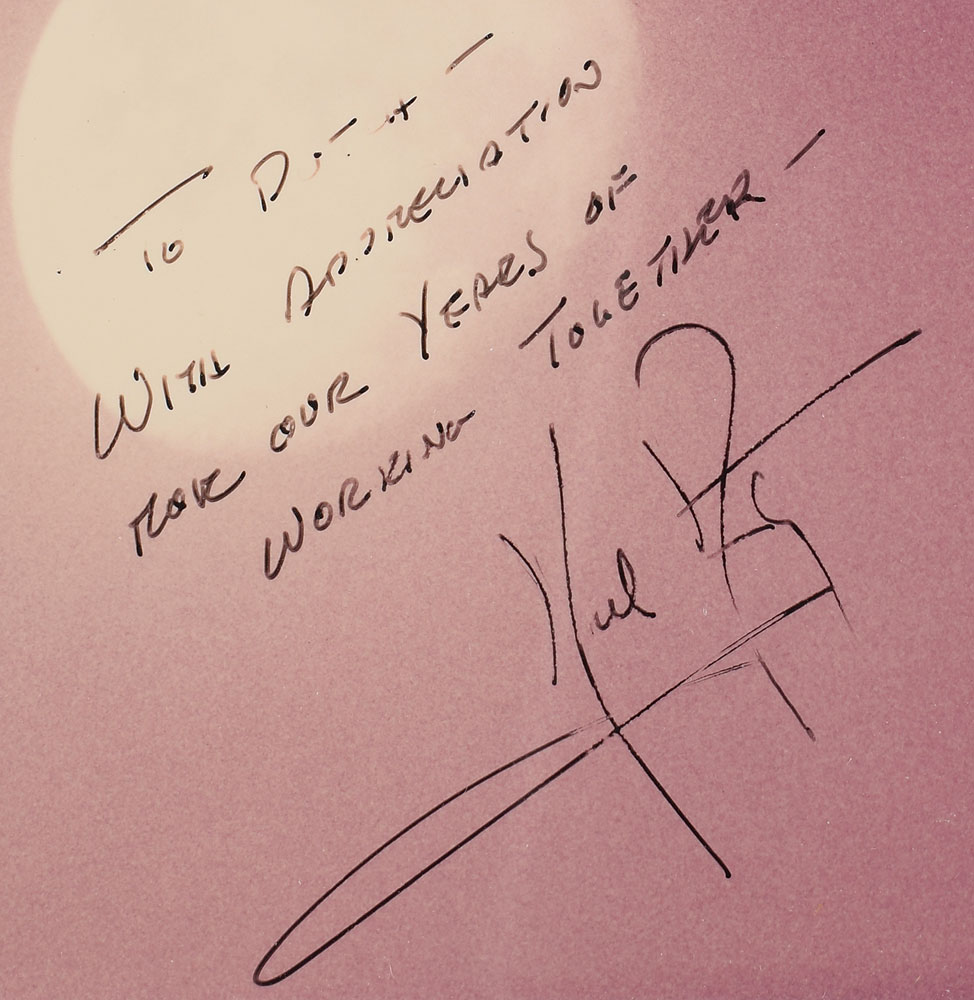 To Dutch —
With Appreciation
for our years of
working together —